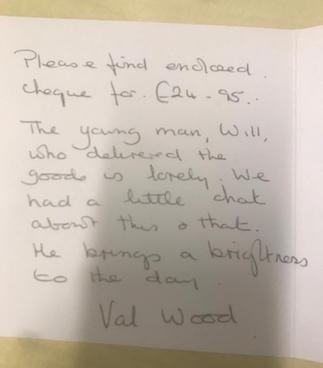 Please find enclosed.
cheque for £24-95..
The young man, Will,
who delivered the
goods is lovely. We
had a little chat
about this & that.
He brings a brightness
to the day.
Val Wood